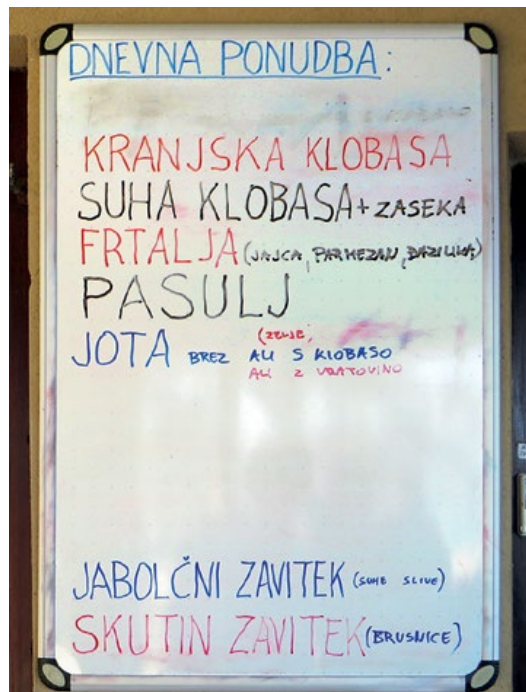 DNEVNA PONUDBA:
KRANJSKA KLOBASA
SUHA KLOBASA + ZASEKA
FRTALJA (JAJCA, PARMEZAN, BAZILIKA)
PASULJ
(ZELJE,
JOTA BREZ ALI S KLOBASO
ALI Z VRATOVINO
JABOLČNI ZAVITEK (SUHE SLIVE)
SKUTIN ZAVITEK (BRUSNICE)